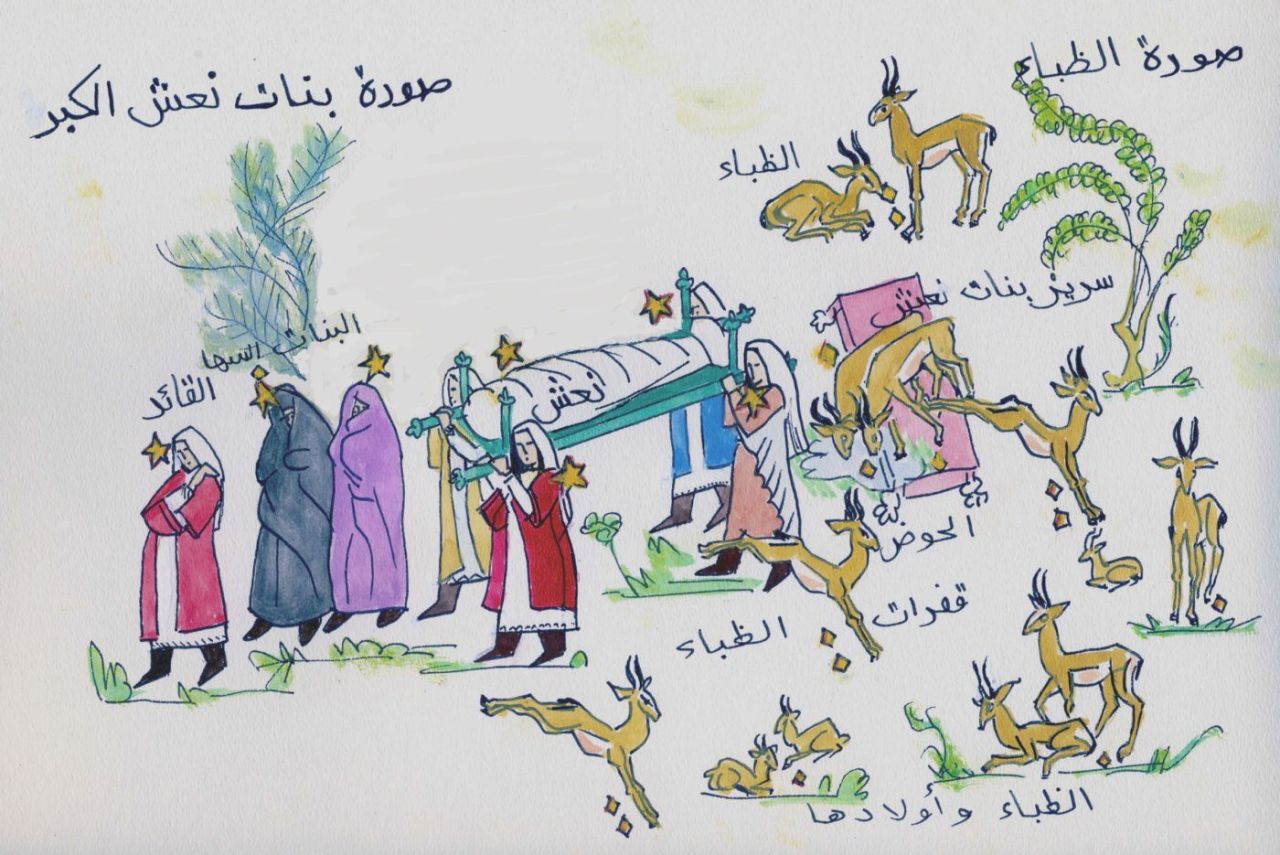 صورة الظباء
صورة بنات نعش الكبر
الظباء
سرير بنات نعش
البنات السها
القائد
نعش
الحوض
قفزات
الظباء
الظباء وأولادها